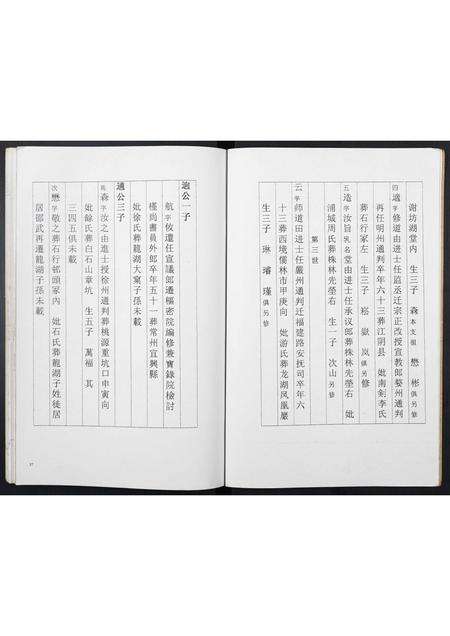 谢坊湖堂内　生三子　森本支祖　懋　彬俱另修
四遹字修道由进士任监丞迁宗正改授宣教郎婺州通判
再任明州通判卒年六十三葬江阴县　妣南剑李氏
葬石行家左　生三子　崧　嶽　岚俱另修
五造字汝旨乳名堂由进士任承议郎葬株林先茔右　妣
浦城周氏葬株林先茔右　生一子　次山另修
第三世
云字师道由进士任严州通判迁福建路安抚司卒年六
十三葬西境儒林市甲庚向　妣游氏葬龙湖凤凰巖
生三子　琳　璿　瑾俱另修
迨公一子
航字攸遺任宣議郎遷樞密院編修兼實錄院檢討
擢尚書員外郎卒年五十一葬常州宜興縣
妣徐氏葬龍湖大窠子孫未載
遹公三子
長森字汝之由進士授徐州通判葬桃源重坑口申寅向
妣餘氏葬白石山章坑　生五子　萬福　其
三四五俱未載
次懋字敬之葬石行邨頭家內　妣石氏葬龍湖子姓徙居
居邵武再遷龍湖子孫未載
17